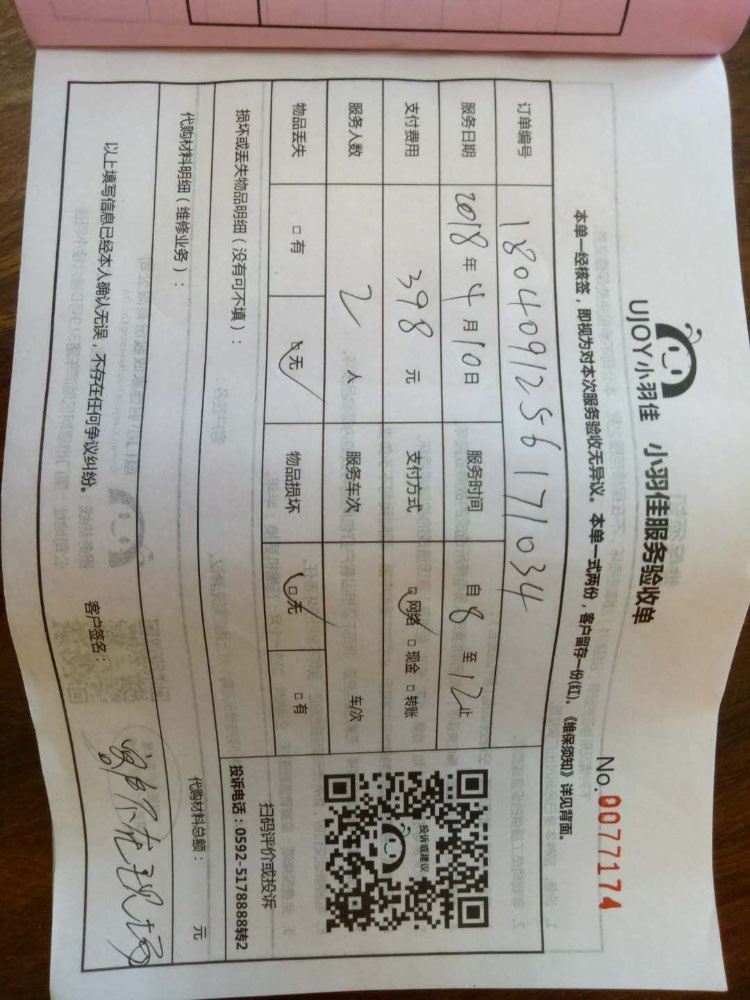 UJOY小羽佳 小羽佳服务验收单
No. 0077174
本单一经核签，即视为对本次服务验收无异议。本单一式两份，客户留存一份(红)。《维保须知》详见背面。
订单编号 180409125617​1034
服务日期 2018年4月10日 服务时间 自8至12止
支付费用 398元 支付方式 □网络 □现金 □转账
服务人数 2人 服务车次 车/次
物品丢失 □有 □无 物品损坏 □无 □有
投诉或建议
扫码评价或投诉
投诉电话：0592-5178888转2
损坏或丢失物品明细（没有可不填）：
代购材料明细（维修业务）： 代购材料总额： 元
以上填写信息已经本人确认无误，不存在任何争议纠纷。 客户签名： 不在现场